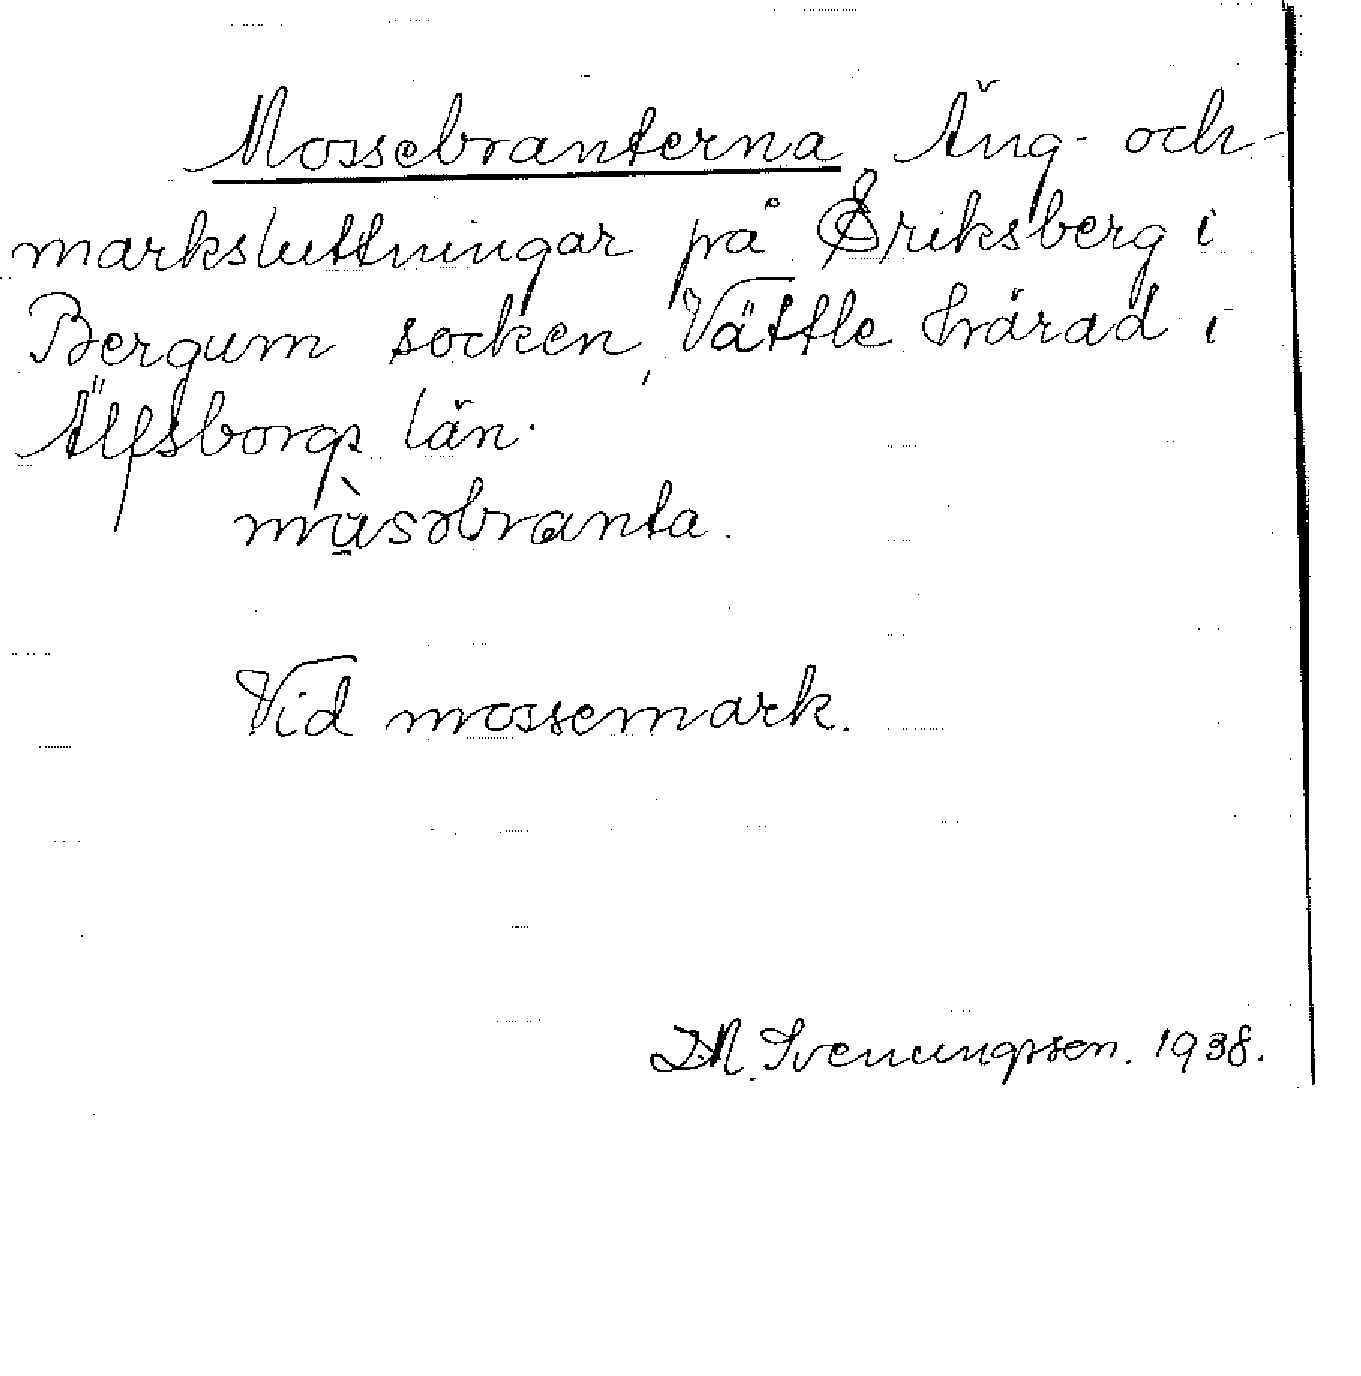 Mossebranterna Äng- och
marksluttningar på Eriksberg i
Bergum socken, Vättle härad i
Älfsborgs län.
mùsəbranta.
Vid mossemark.
D.N. Svenungsson. 1938.